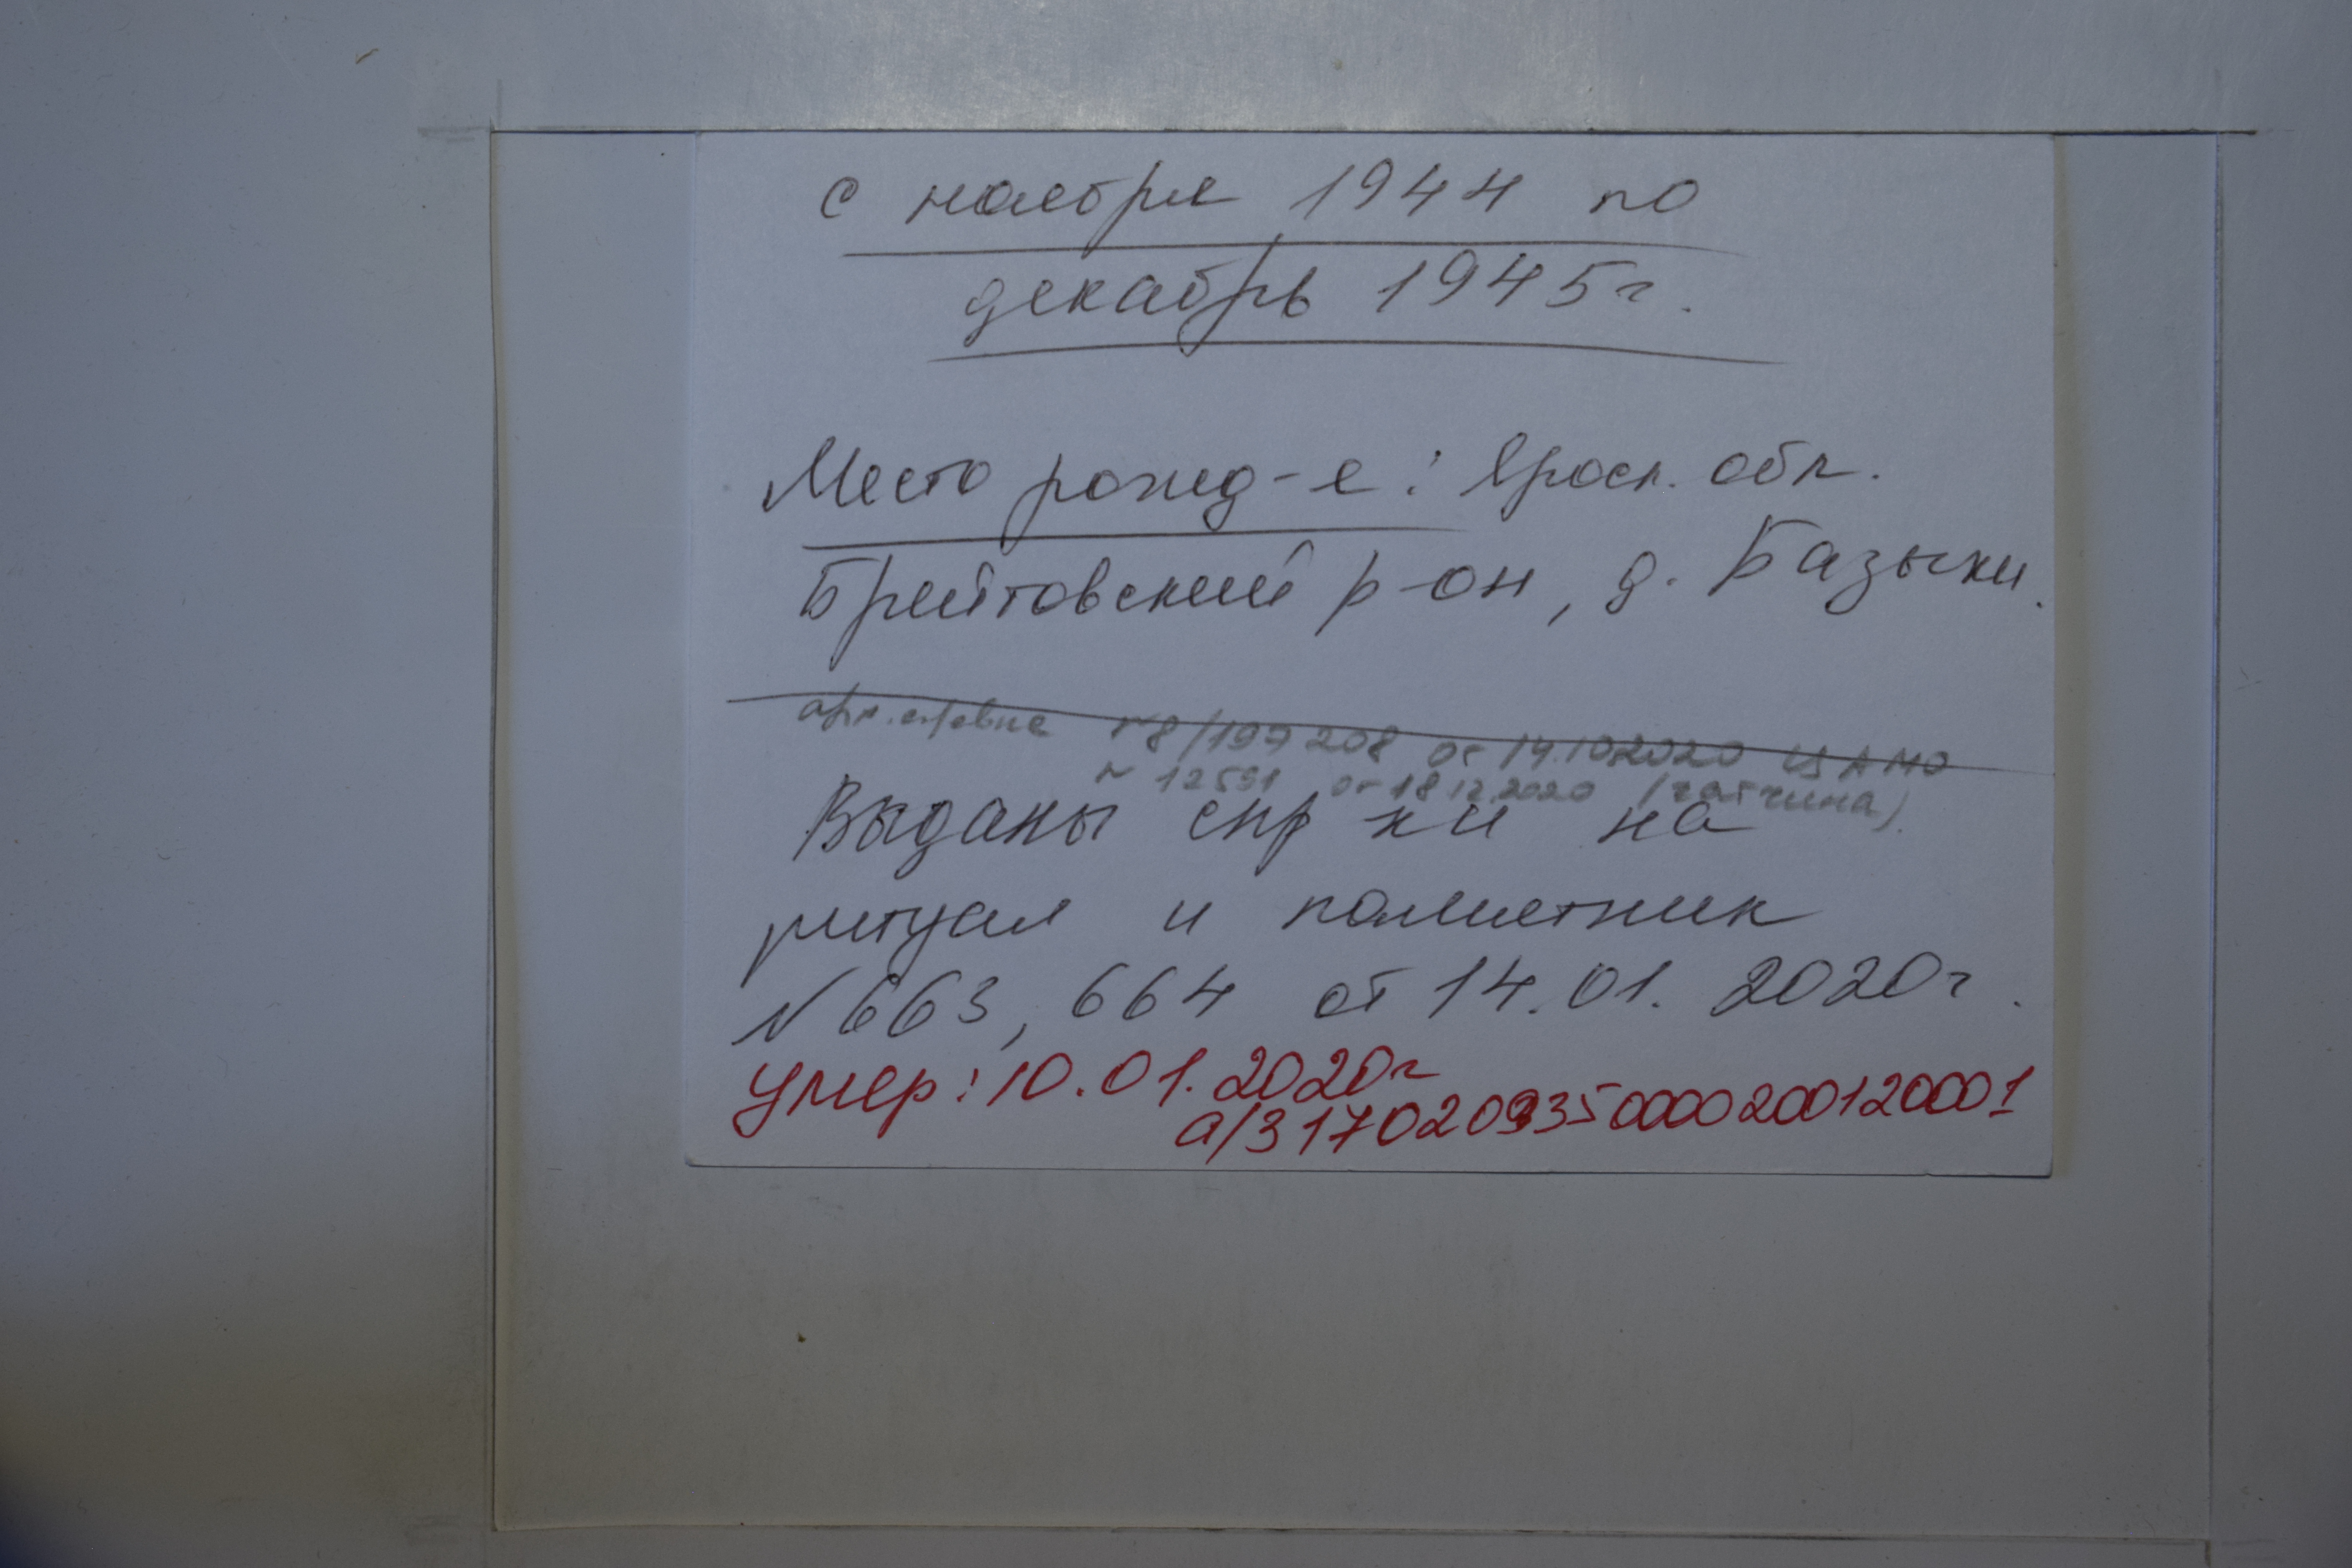 с ноября 1944 по
декабрь 1945г.
Место рожд-е: Яросл. обл.
Брейтовский р-он, д. Базыки.
арх. справке №8/197208 от 14.10.2020 ЦАМО
№ 12591 от 18.12.2020 (Гатчина).
Выданы спр-ки на
ритуал и памятник
№663, 664 от 14.01.2020г.
умер: 10.01.2020г
а/з 170209350000200120001